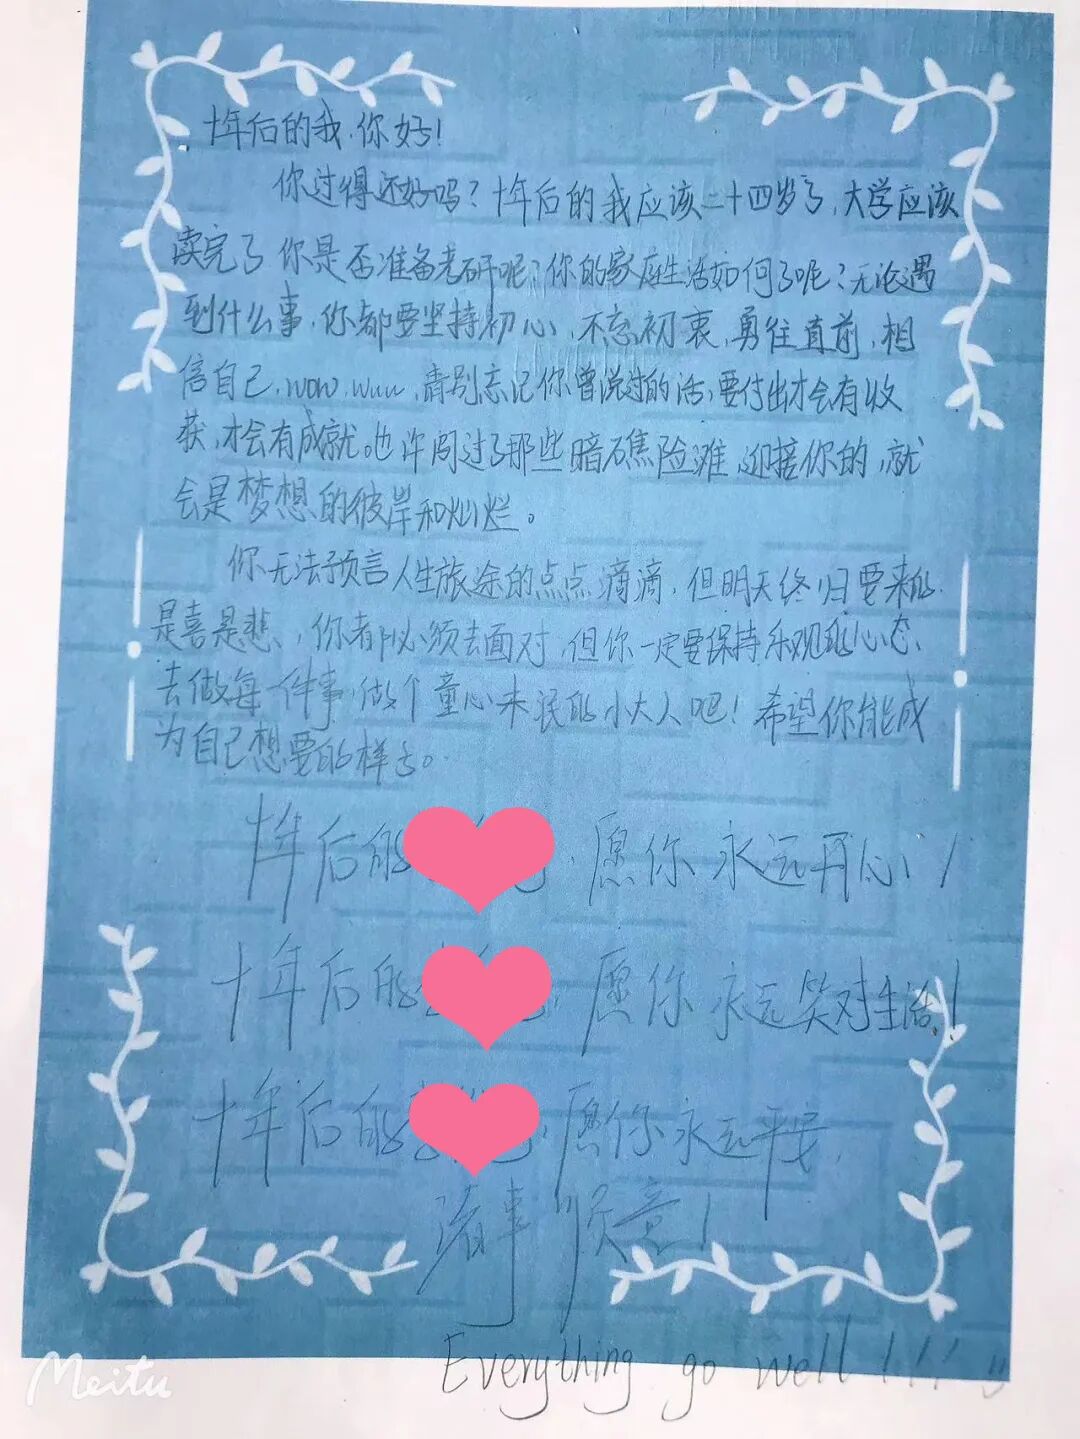 十年后的我，你好！
你过得还好吗？十年后的我应该二十四岁了，大学应该
读完了 你是否准备考研呢？你的家庭生活如何了呢？无论遇
到什么事，你都要坚持初心，不忘初衷，勇往直前，相
信自己，wow，wuu，请别忘记你曾说过的话，要付出才会有收
获，才会有成就。也许闯过了那些暗礁险滩，迎接你的，就
会是梦想的彼岸和灿烂。
你无法预言人生旅途的点点滴滴，但明天终归要来的，
是喜是悲，你都必须去面对，但你一定要保持乐观的心态，
去做每一件事，做个童心未泯的小大人吧！希望你能成
为自己想要的样子。
十年后的 愿你永远开心！
十年后的 愿你永远笑对生活！
十年后的 愿你永远平安，
诸事顺意！
Everything go well！！！
Meitu